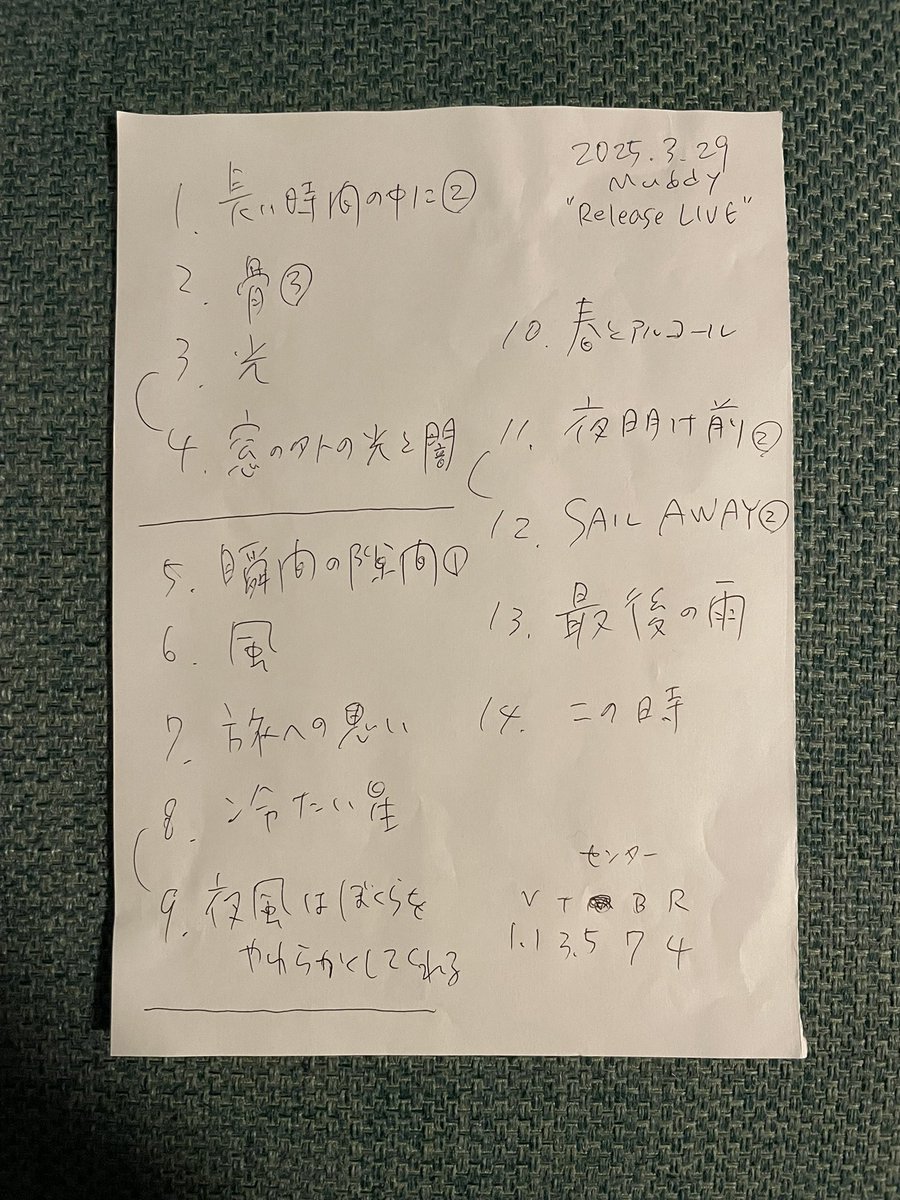 2025.3.29
Muddy
"Release LIVE"
1. 長い時間の中に②
2. 骨③
3. 光
4. 窓のソトの光と闇
5. 瞬間の隙間①
6. 風
7. 旅への思い
8. 冷たい星
9. 夜風はぼくらを
やわらかくしてくれる
10. 春とアルコール
11. 夜明け前②
12. SAIL AWAY②
13. 最後の雨
14. この時
センター
V T B R
1.1 3.5 7 4